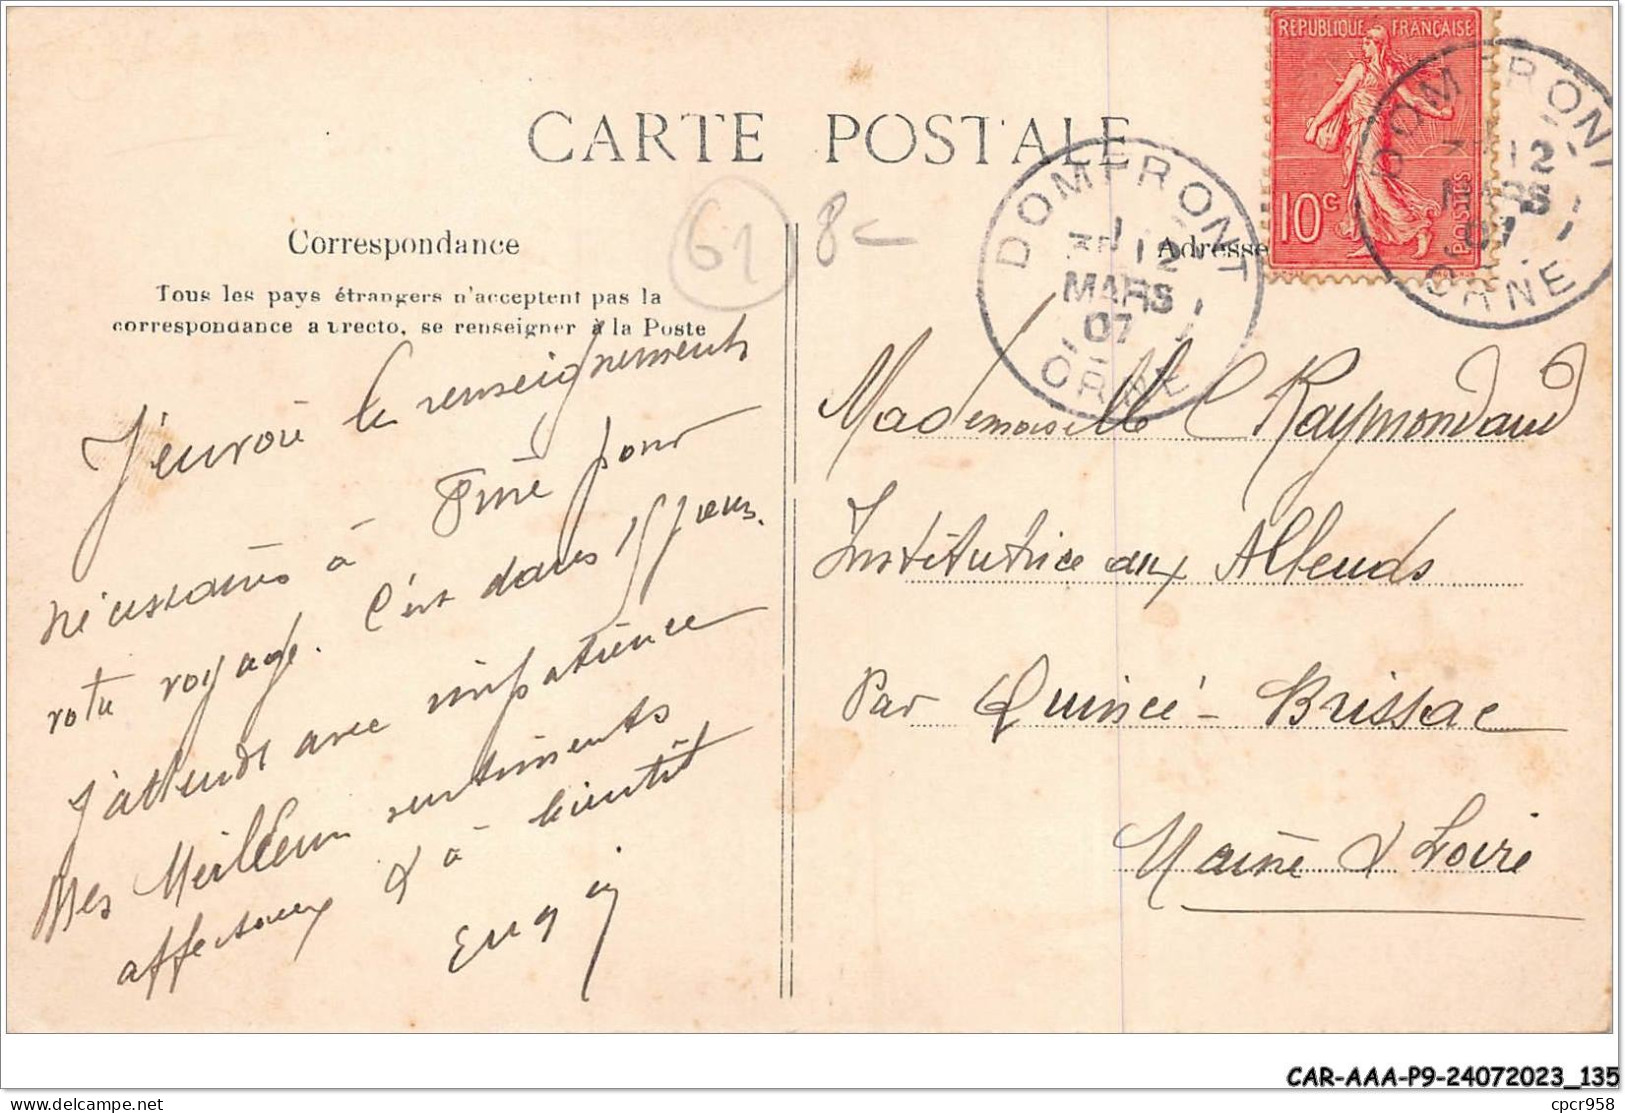 CARTE POSTALE
REPUBLIQUE FRANÇAISE
10c
POSTES
DOMFRONT
12
MARS
07
ORNE
DOMFRONT
12
MARS
07
ORNE
61
8
Correspondance
Adresse
Tous les pays étrangers n'acceptent pas la
correspondance au recto, se renseigner à la Poste
J'envoie les renseignements
nécessaires à pour
votre voyage. C'est dans 15 jours.
J'attends avec impatience
Mes Meilleurs sentiments
affectueux & à bientôt
Mademoiselle C Raymondaud
Institutrice aux Alleuds
Par Quincé-Brissac
Maine & Loire
CAR-AAA-P9-24072023_135
delcampe.net
cpcr958